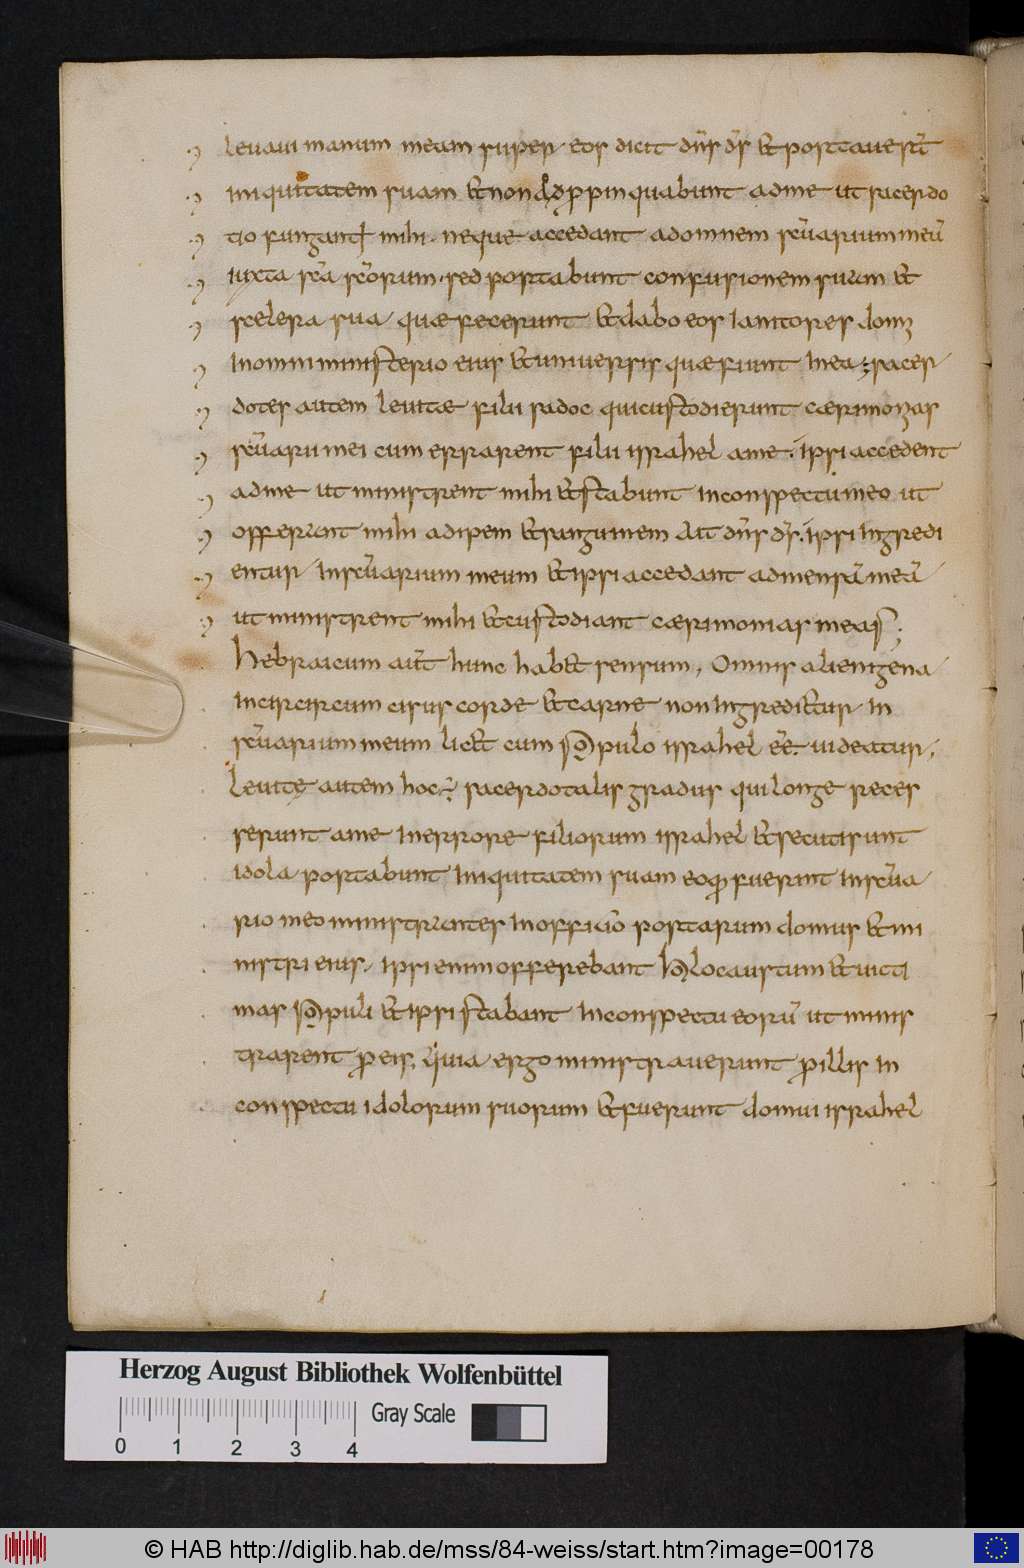 leuaui manum meam super eos dicit dn̄s ds̄ & portauer̄t
iniquitatem suam & non adppinquabunt ad me ut sacerdo
tio fungant mihi · neque accedant ad omnem sc̄uarium meū
iuxta sc̄a sc̄orum · sed portabunt confusionem suam &
scelera sua quæ fecerunt & dabo eos ianitores domꝫ
in omni ministerio eius & uniuersis quæ fiunt in ea ; sacer
dotes autem leuitæ filii sadoc qui custodierunt cærimonias
sc̄uarii mei cum errarent filii israhel a me · ipsi accedent
ad me ut ministrent mihi & stabunt in conspectu meo ut
offerant mihi adipem & sanguinem ait dn̄s ds̄ · ipsi ingredi
entur in sc̄uarium meum & ipsi accedant ad mensā meā
ut ministrent mihi & custodiant cærimonias meas ;
Hebraicum aūt hunc hab& sensum , Omnis alienigena
incircumcisus corde & carne non ingredi&ur in
sc̄uarium meum lic& cum populo israhel ee᷑ uideatur ,
leuitę autem hoc ē sacerdotalis gradus qui longe reces
serunt a me in errore filiorum israhel & secuti sunt
idola portabunt iniquitatem suam eoqd fuerint in sc̄ua
rio meo ministrantes in officio portarum domus & mi
nistri eius , ipsi enim offerebant holocaustum & uicti
mas populi & ipsi stabant in conspectu eorū ut minis
trarent p eis , quia ergo ministrauerunt p illis in
conspectu idolorum suorum & fuerunt domui israhel
Herzog August Bibliothek Wolfenbüttel
Gray Scale
0 1 2 3 4
© HAB http://diglib.hab.de/mss/84-weiss/start.htm?image=00178